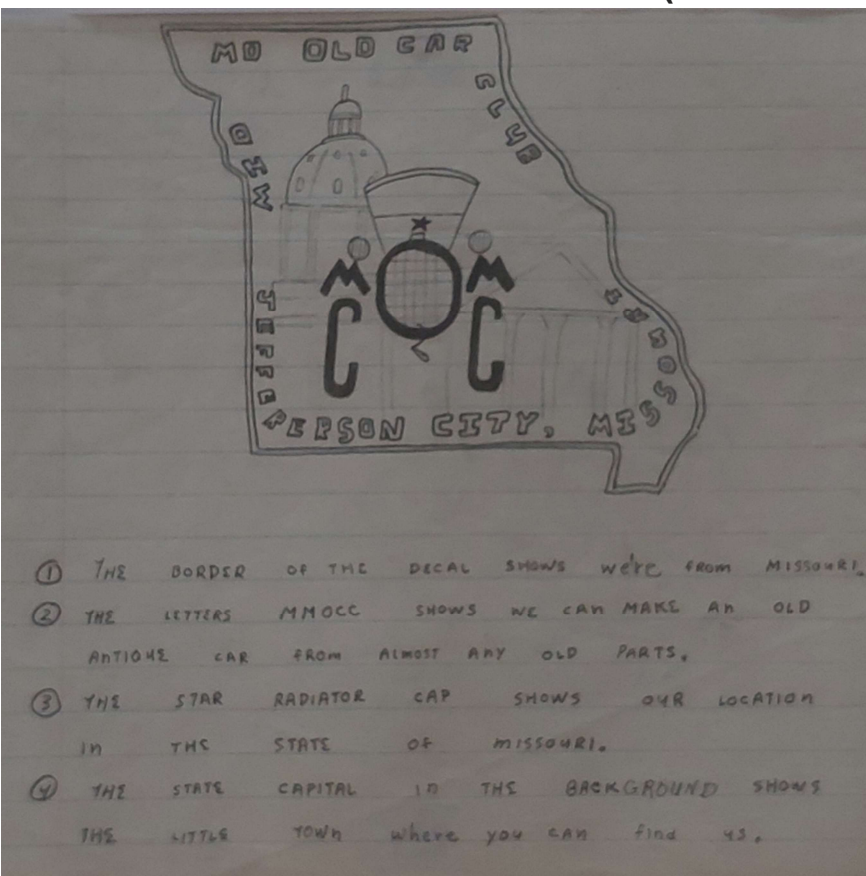 MID MO OLD CAR CLUB
JEFFERSON CITY, MISSOURI
M O M
C C
① THE BORDER OF THE DECAL SHOWS we're from MISSOURI.
② THE LETTERS MMOCC SHOWS WE CAN MAKE AN OLD
ANTIQUE CAR FROM ALMOST ANY OLD PARTS.
③ THE STAR RADIATOR CAP SHOWS OUR LOCATION
in THE STATE OF MISSOURI.
④ THE STATE CAPITAL IN THE BACKGROUND SHOWS
THE LITTLE TOWN where you CAN find US.